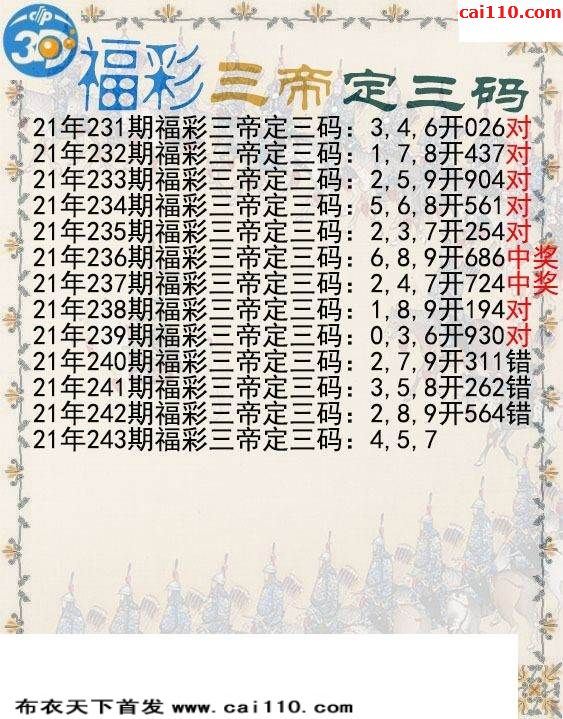 cai110.com
3D
福彩三帝定三码
21年231期福彩三帝定三码：3,4,6开026对
21年232期福彩三帝定三码：1,7,8开437对
21年233期福彩三帝定三码：2,5,9开904对
21年234期福彩三帝定三码：5,6,8开561对
21年235期福彩三帝定三码：2,3,7开254对
21年236期福彩三帝定三码：6,8,9开686中奖
21年237期福彩三帝定三码：2,4,7开724中奖
21年238期福彩三帝定三码：1,8,9开194对
21年239期福彩三帝定三码：0,3,6开930对
21年240期福彩三帝定三码：2,7,9开311错
21年241期福彩三帝定三码：3,5,8开262错
21年242期福彩三帝定三码：2,8,9开564错
21年243期福彩三帝定三码：4,5,7
布衣天下首发 www.cai110.com